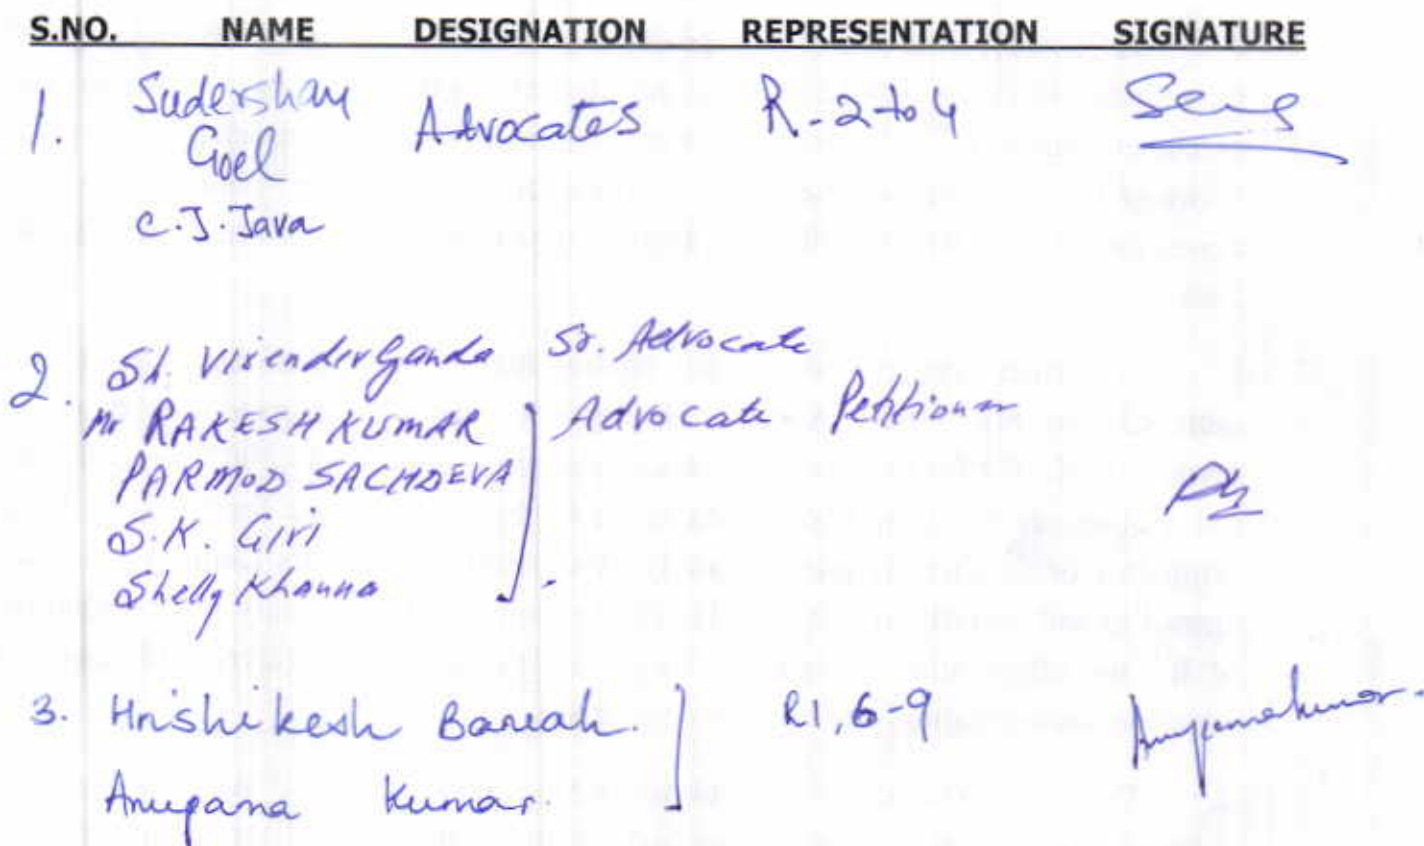 S.NO. NAME DESIGNATION REPRESENTATION SIGNATURE
1. Sudershan Advocates R-2 to 4
Goel
C.J. Java
2. Sh. Virender Ganda Sr. Advocate
Mr RAKESH KUMAR Advocate Petitioner
PARMOD SACHDEVA
S.K. Giri
Shelly Khanna
3. Hrishikesh Baruah. R1,6-9 Anupamakumar
Anupama Kumar.